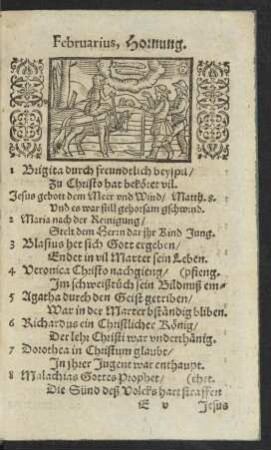 Februarius, Hornung.
1 Brigita durch freundtlich beyspil/
Zu Christo hat bekört vil.
Jesus gebott dem Meer vnd Wind/ Matth. 8.
Vnd es war still gehorsam gschwind.
2 Maria nach der Reinigung/
Stelt dem Herrn dar jhr Kind Jung.
3 Blasius het sich Gott ergeben/
Endet in vil Marter sein Leben.
4 Veronica Christo nachgieng/ (pfieng.
Im schweißtůch sein Bildnuß em-
5 Agatha durch den Geist getriben/
War in der Marter bständig bliben.
6 Richardus ein Christlicher König/
Der lehr Christi war vnderthänig.
7 Dorothea in Christum glaubt/
In jhrer Jugent war enthaupt.
8 Malachias Gottes Prophet/ (thet.
Die Sünd deß Volcks hart straffen
E v Jesus